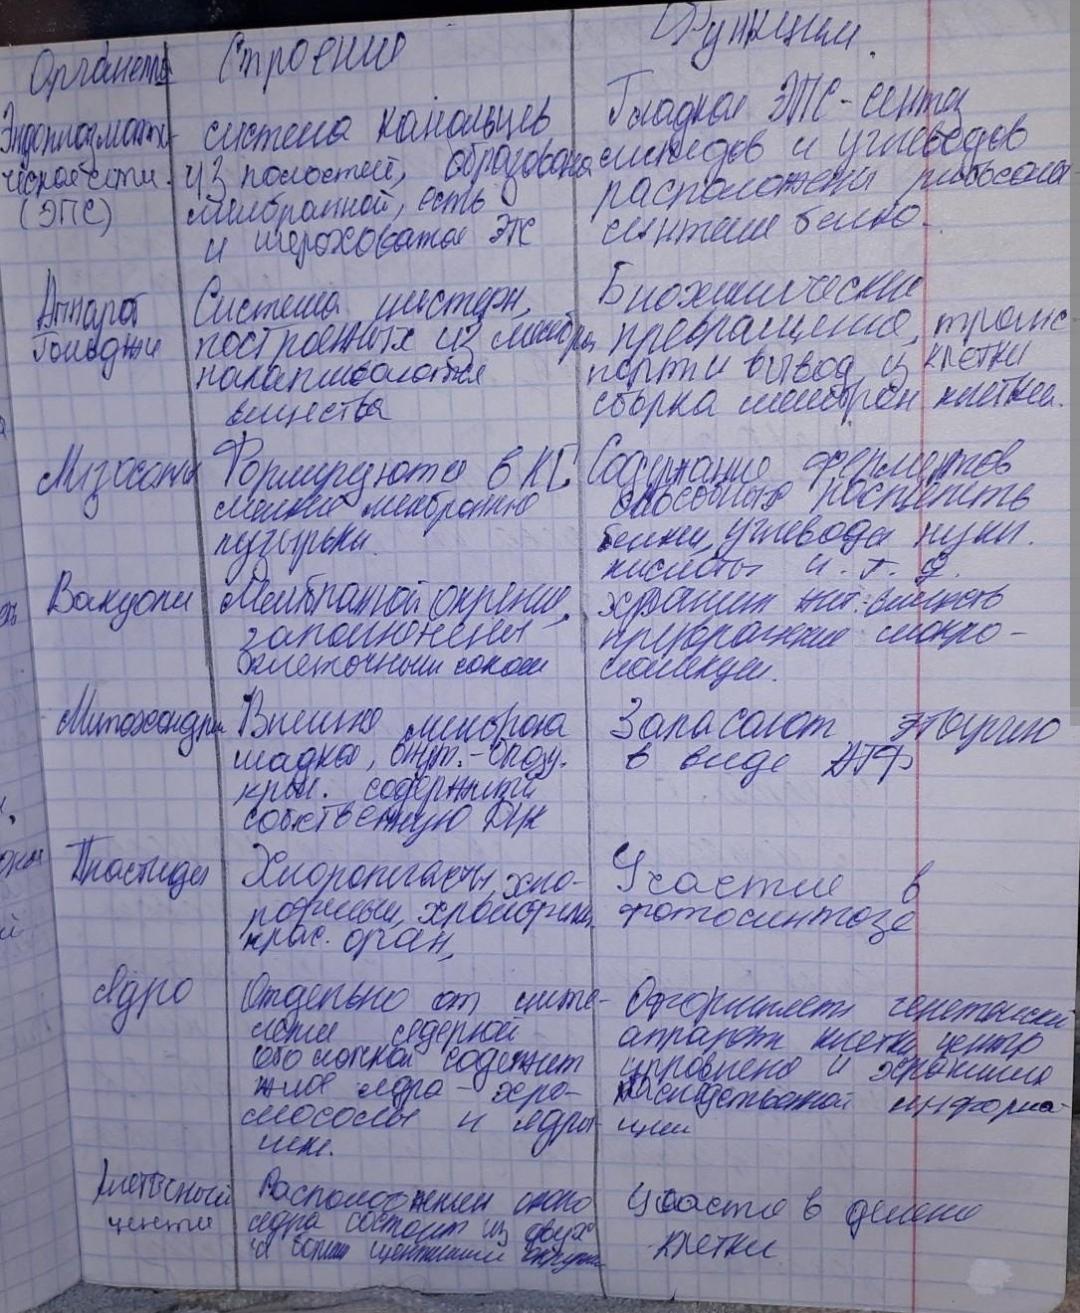 Органеллы Строение Функции.
Эндоплазмати-
ческой сети.
(ЭПС)
система канальцев
из полостей, образована
мембранной, есть
и шероховатая ЭПС
Гладкая ЭПС - синтез
липидов и углеводов
расположены рибосома
синтеше белко-
Аппарат
Гольджи
Система цистерн,
построенных из мембран
накапливаются
вещества
Биохимические
превращение, транс-
порт и вывод из клетки
сборка мембран клетки.
Лизосомы
Формируются в КГ
мелкие мембранные
пузырьки.
Содержание ферментов
способных расщепить
белки, углевода нукл.
кислоты и.т.д.
Вакуоли
Мембраной окружены,
заполнены
клеточным соком
хранит пит. веществ
превращение макро-
молекул.
Митохондрии
Внешне мембрана
гладкая, внут.-
собственную ДНК
Запасают энергию
в виде АТФ
Пластиды
Хлоропласты, хло-
крас. орган,
Участие в
фотосинтозе
Ядро
Отдельно от цито-
ядерной
оболочкой содержит
ядра - хро-
мосомы и ядры-
шки.
Оформляет генетский
аппарат клетки, центр
и хранит
наследственной информа-
ции
Клеточный
центр
Расположен около
ядра состоит из двух
Участие в делени
клетки